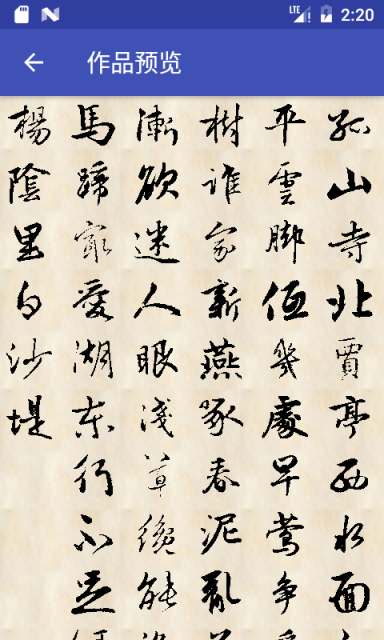 LTE 2:20
作品预览
孤山寺北賈亭西水面
平雲脚低幾處早莺争
樹谁家新燕啄春泥亂
漸欲迷人眼淺草纔能
馬蹄最愛湖東行不足
楊陰里白沙堤